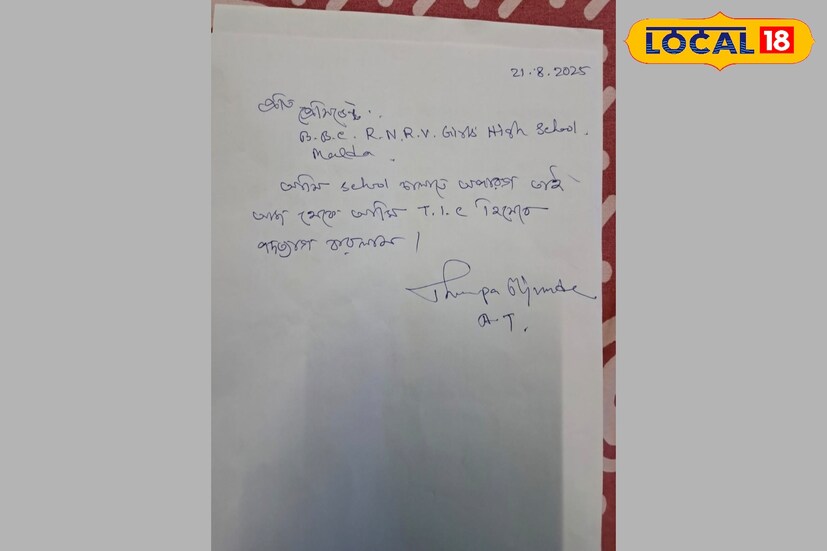 LOCAL 18
21.8.2025
প্রতি
প্রেসিডেন্ট..
B.B.C. R.N.R.V. Girls High School.
Malda.
আমি School চালাতে অপারগ তাই
আজ থেকে আমি T.I.C হিসেবে
পদত্যাগ করলাম।
A.T.